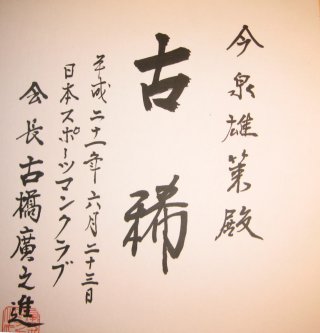 今泉雄策殿
古稀
平成二十一年六月二十三日
日本スポーツマンクラブ
会長古橋廣之進